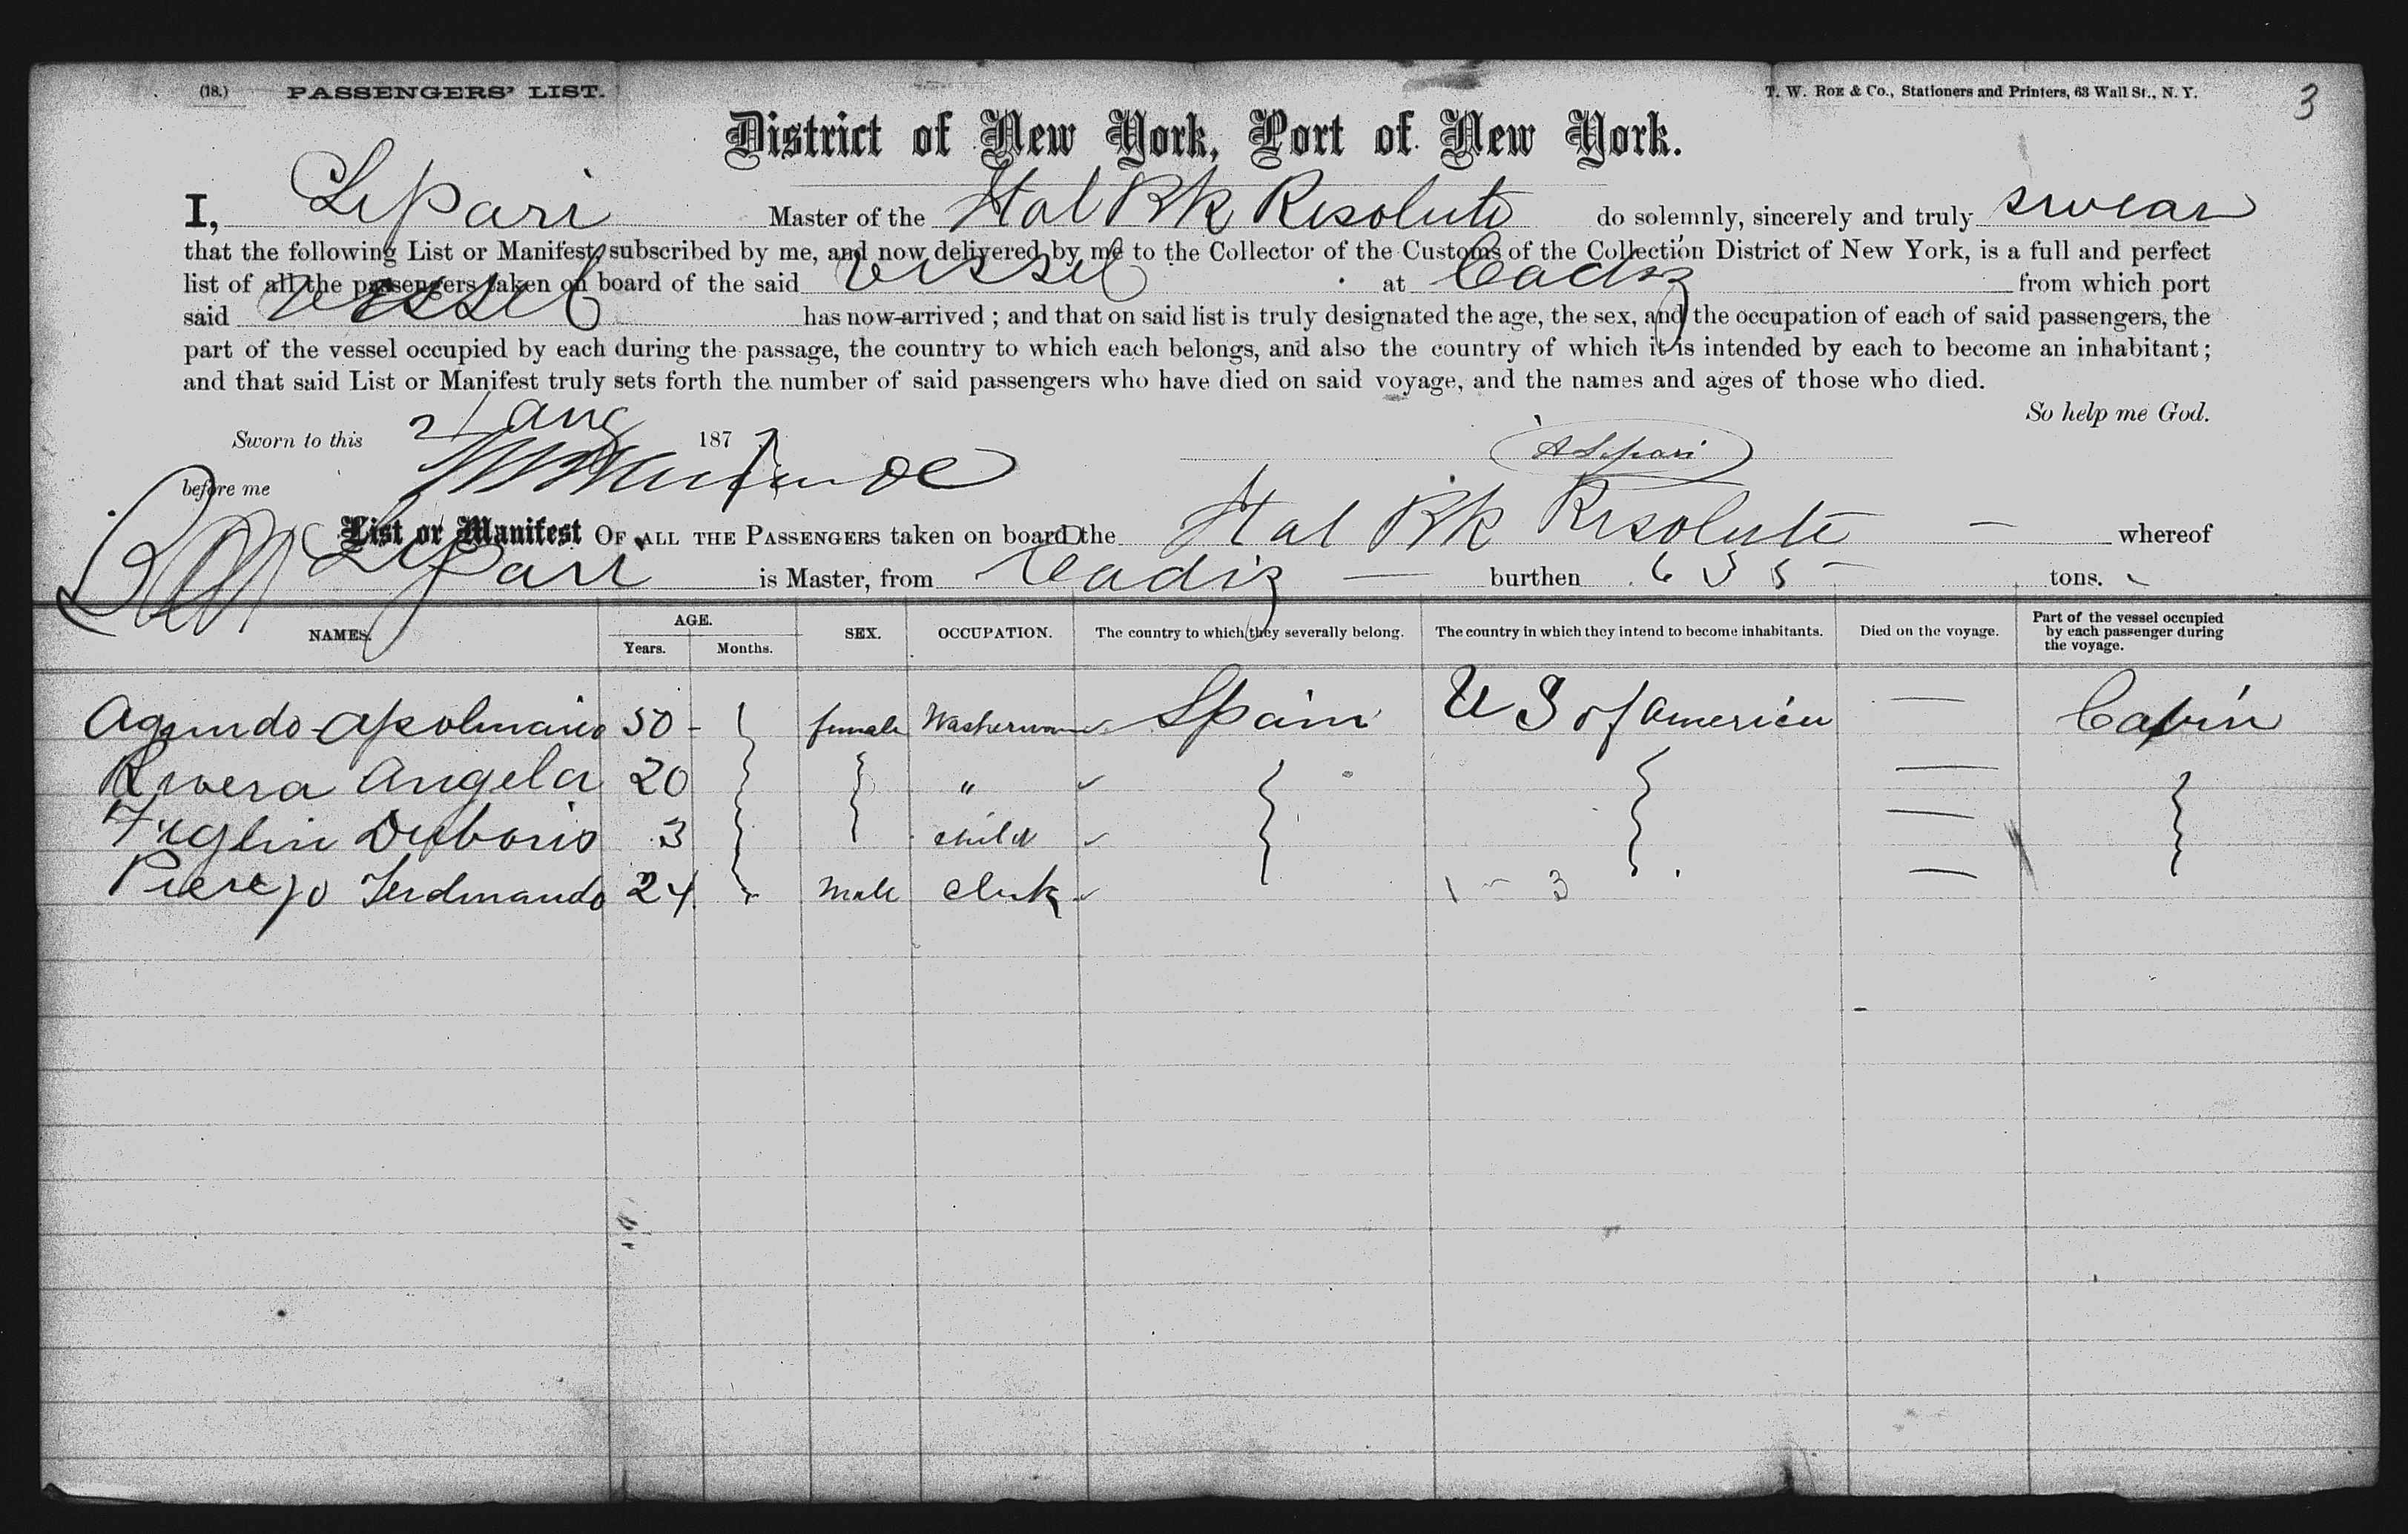 (18.) PASSENGERS' LIST. T. W. Roe & Co., Stationers and Printers, 63 Wall St., N. Y. 3
District of New York, Port of New York.
I, Lipari Master of the Ital Bk Resolute do solemnly, sincerely and truly swear
that the following List or Manifest, subscribed by me, and now delivered by me to the Collector of the Customs of the Collection District of New York, is a full and perfect
list of all the passengers taken on board of the said vessel at Cadiz from which port
said vessel has now arrived ; and that on said list is truly designated the age, the sex, and the occupation of each of said passengers, the
part of the vessel occupied by each during the passage, the country to which each belongs, and also the country of which it is intended by each to become an inhabitant ;
and that said List or Manifest truly sets forth the number of said passengers who have died on said voyage, and the names and ages of those who died.
So help me God.
Sworn to this Aug 187
A Lipari
before me
List or Manifest OF ALL THE PASSENGERS taken on board the Ital Bk Resolute — whereof
Lipari is Master, from Cadiz — burthen tons.
NAMES. AGE. Years. Months. SEX. OCCUPATION. The country to which they severally belong. The country in which they intend to become inhabitants. Died on the voyage. Part of the vessel occupied by each passenger during the voyage.
50 female Spain U S of America — Cabin
Rivera Angela 20 " —
3 child —
Ferdinando 24 Male Clerk 1 - 3 —